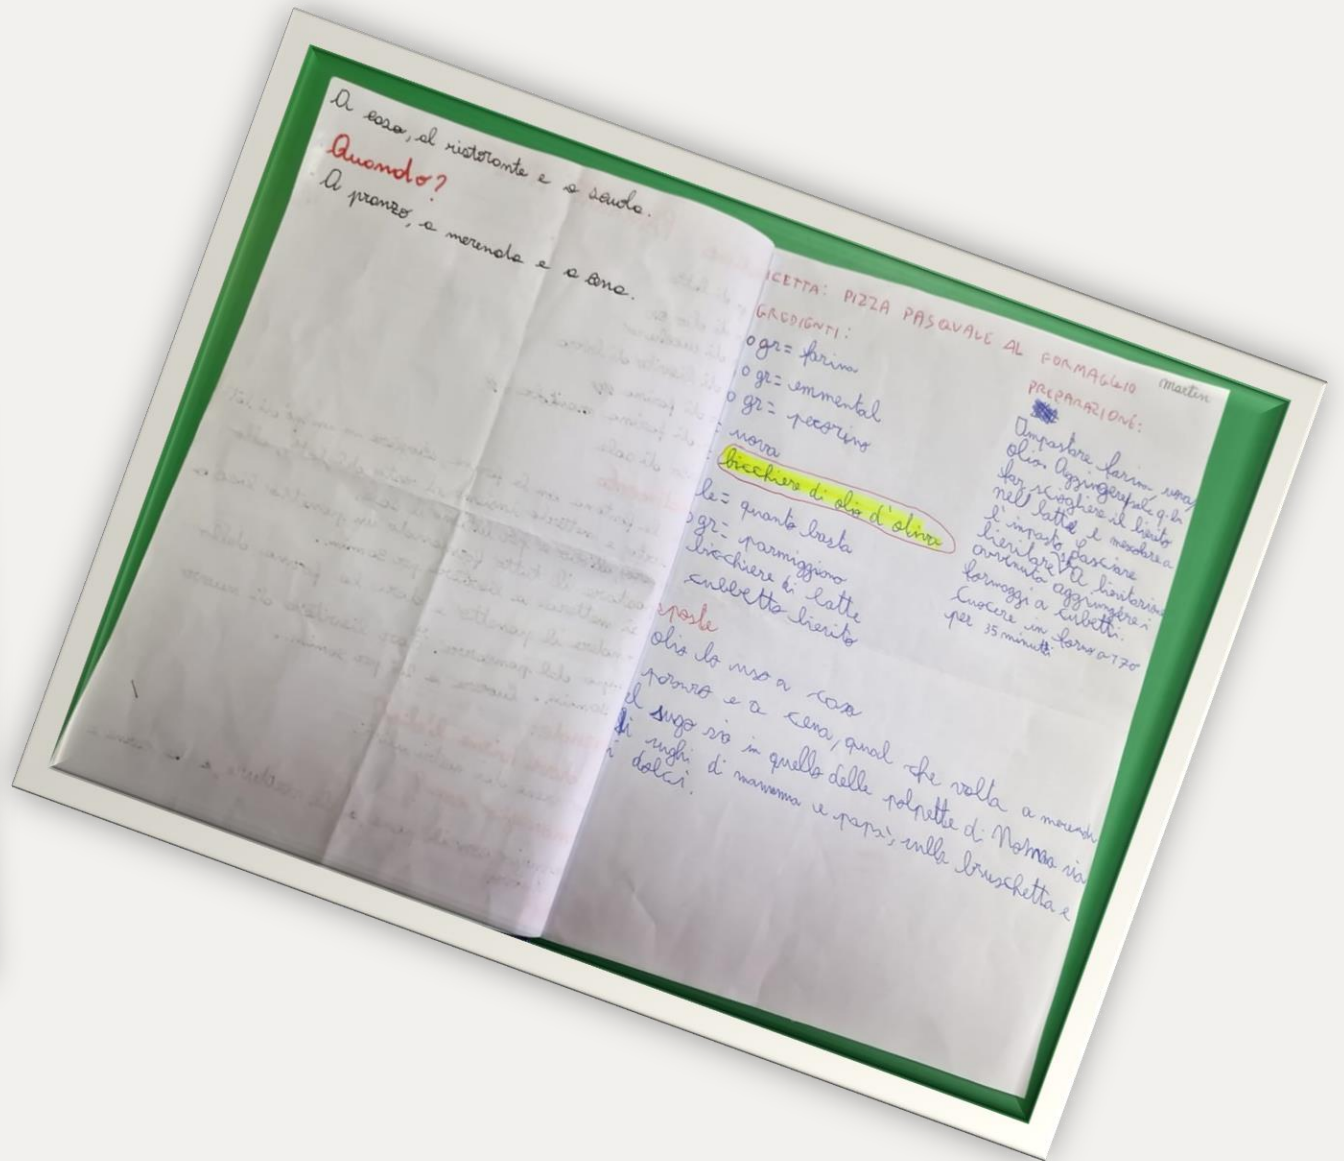 A casa, al ristorante e a scuola.
Quando?
A pranzo, a merenda e a cena.
ICETTA: PIZZA PASQUALE AL FORMAGGIO
Martin
GREDIENTI:
0 gr = farina
0 gr = emmental
0 gr = pecorino
= uova
bicchiere di olio d'oliva
le = quanto basta
0 gr = parmiggiano
bicchiere di latte
cubbetto lievito
PREPARAZIONE:
Impastare farina, uova,
olio. Aggiungere sale q.b.
far sciogliere il lievito
nell latte e mescolare a
l'impasto, lasciare
lievitare. A lievitazione
avvenuta aggiungere i
formaggi a cubetti.
Cuocere in forno a 170°
per 35 minuti
sposte
olio lo uso a casa
pranzo e a cena, qual che volta a merenda
l sugo sia in quello delle polpette di Nonna sia
i sughi di mamma e papà, sulla bruschetta e
i dolci.